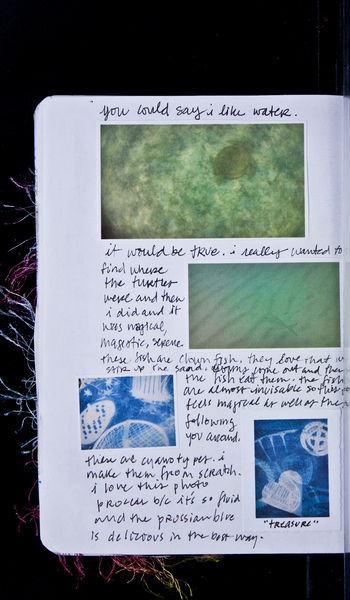 you could say i like water.
it would be true. i really wanted to
find where
the turtles
were and then
i did and it
was magical,
majestic, serene.
these fish are clown fish. they love that
stir up the sand. come out and then
the fish eat them. the fish
are almost invisable so they
feel magical as well
following
you around.
these are cyanotypes. i
make them from scratch.
i love this photo
process b/c it's so fluid
and the prussian blue
is delicious in the best way.
"TREASURE"